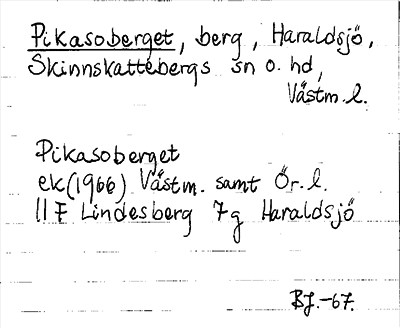 Pikasoberget, berg, Haraldsjö,
Skinnskattebergs sn o. hd,
Västm. l.
Pikasoberget
ek(1966) Västm. samt Ör. l.
11 F Lindesberg 7g Haraldsjö
BJ.-67.